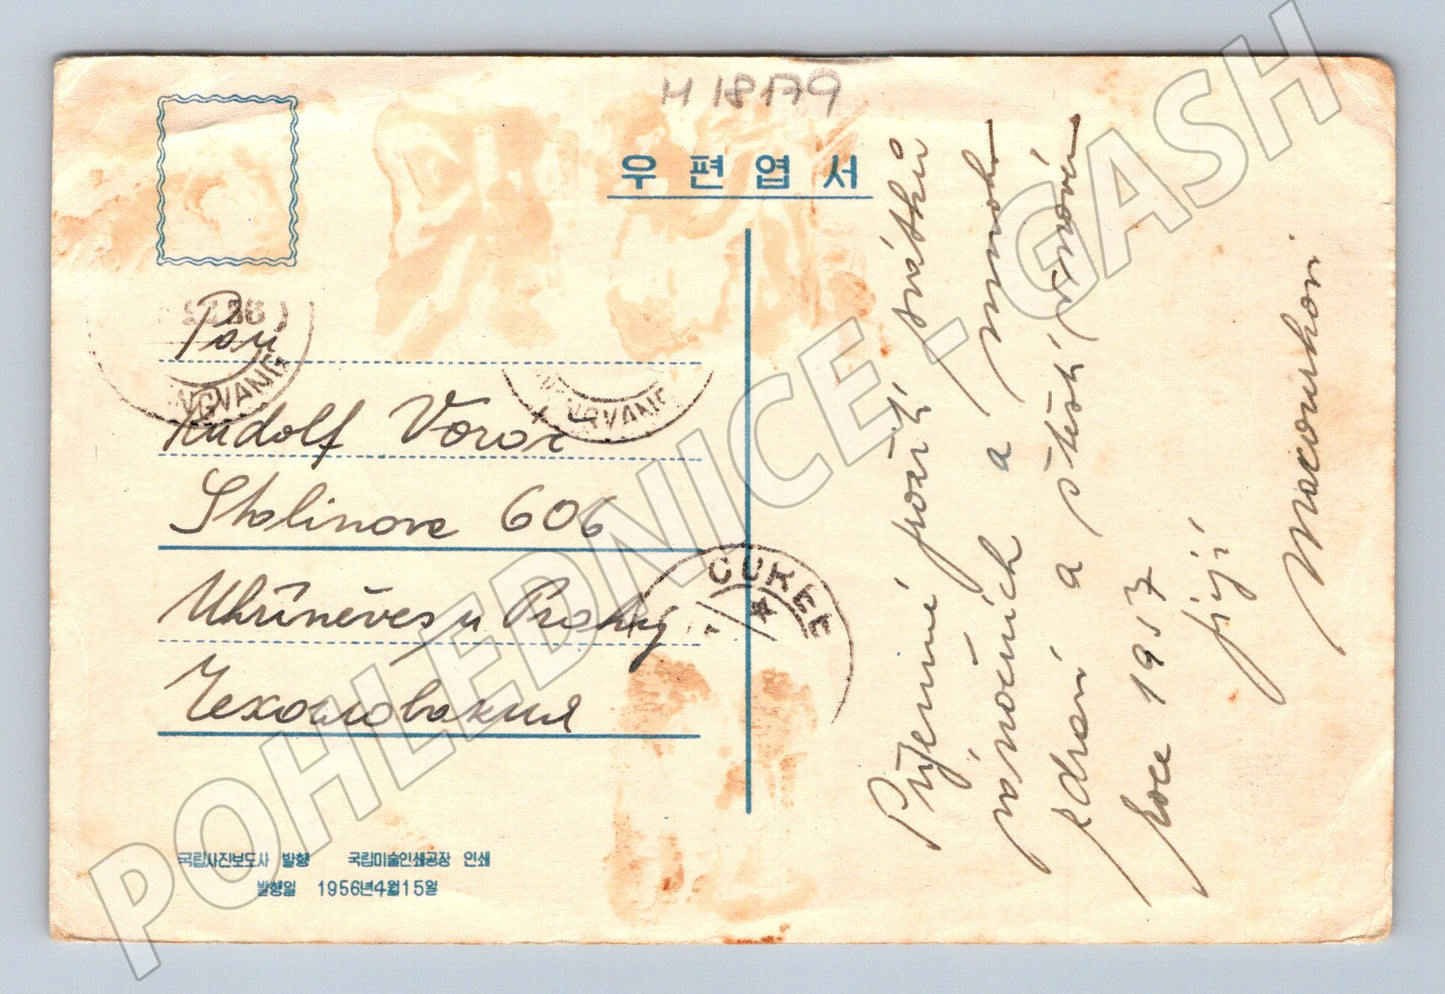 H 18179
우편엽서
Pan
Rudolf Vorac
Stalinova 606
Uhříněves u Prahy
Чехословакия
Příjemné požití svátků
vánočních a mnoho
zdraví a štěstí v novém
roce 1957
přejí
Macourkovi
PYONGYANG
COREE
국립사진보도사 발행 국립미술인쇄공장 인쇄
발행일 1956년4월15일
POHLEDNICE - GASH